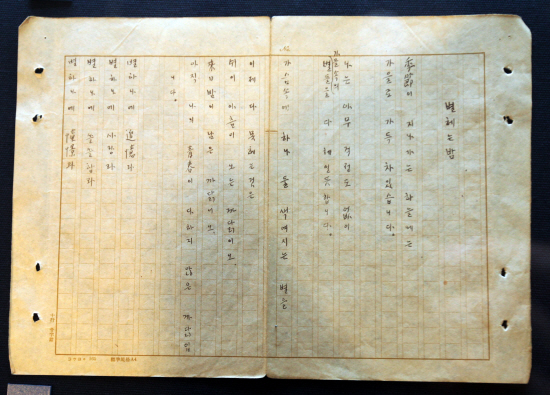 별헤는밤
季節이 지나가는 하늘에는
가을로 가득 차있습니다.
나는 아무 걱정도 없이
가을속의 별들을 다 헤일듯합니다.
가슴속에 하나 둘 색여지는 별을
이제 다 못헤는것은
쉬이 아츰이 오는 까닭이오,
來日밤이 남은 까닭이오,
아직 나의 靑春이 다하지 않은 까닭임
니다.
별하나에 追憶과
별하나에 사랑과
별하나에 쓸쓸함과
별하나에 憧憬과